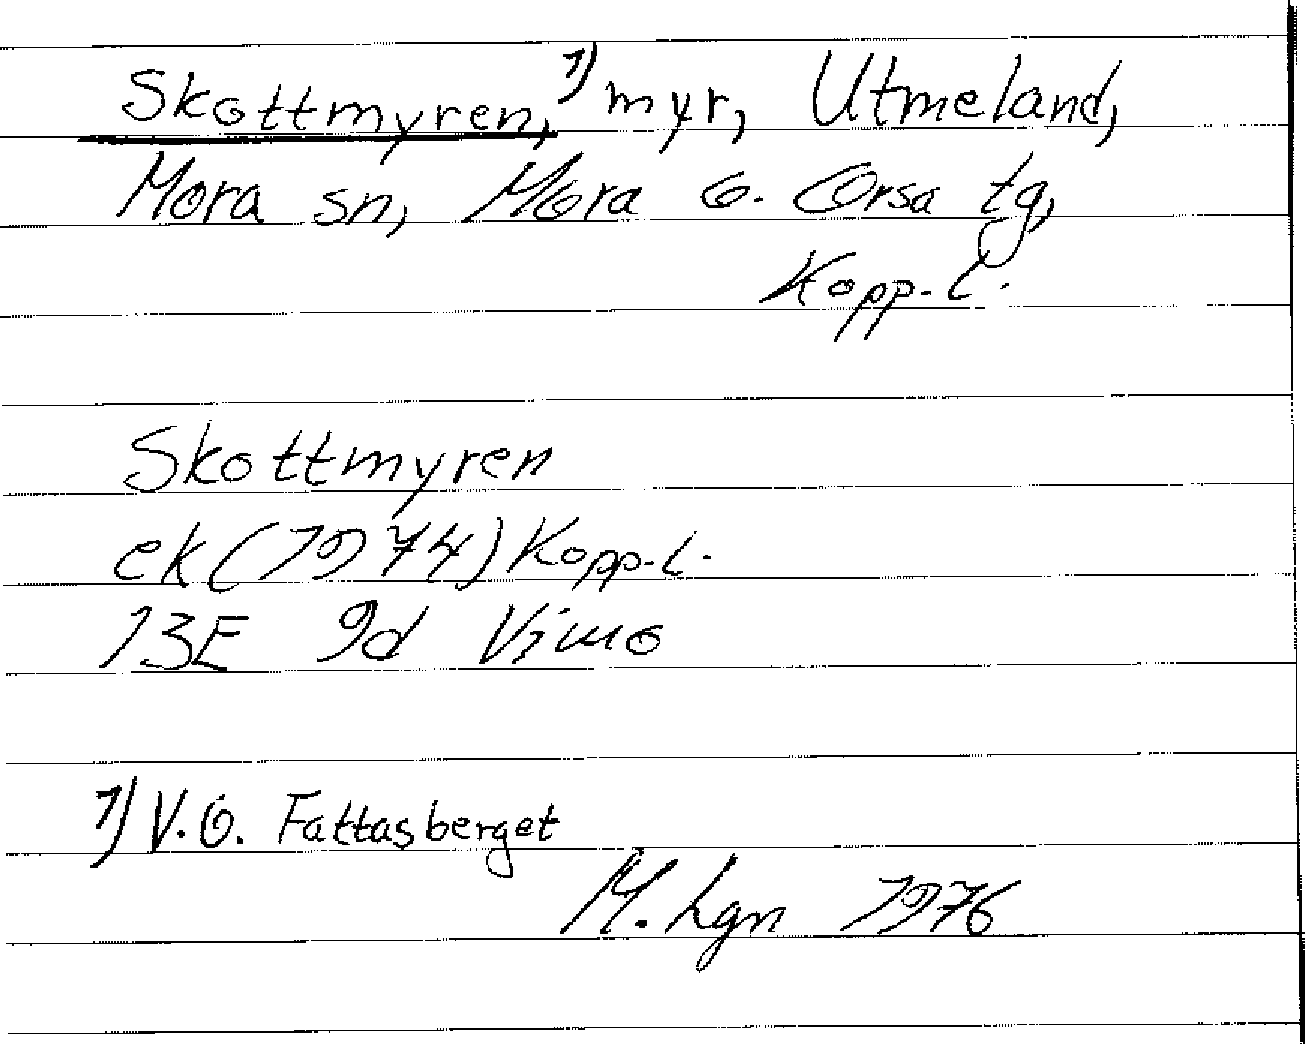 Skottmyren,¹⁾ myr, Utmeland,
Mora sn, Mora o. Orsa tg,
Kopp. l.
Skottmyren
ek (1974) Kopp. l.
13E 9d Vimo
1) V.O. Fattasberget
M. Lgn 1976